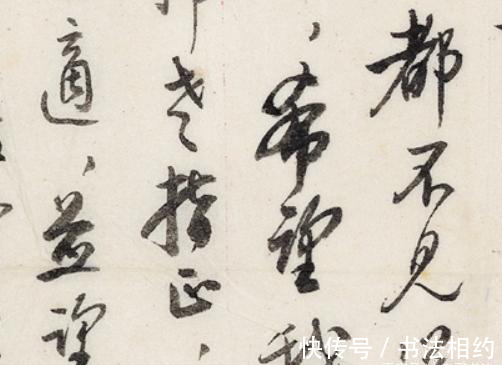 都不見
，希望我
老指正，
適，並望
快传号 / 书法相约